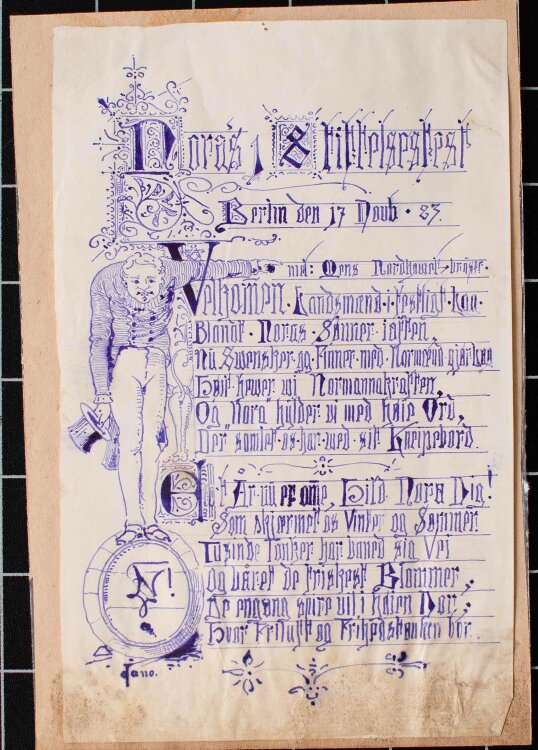 Nora's Stiftelsesfest
Berlin den 17 Novb. 83.
mel: Mens Nordhavet bruser.
Velkomen Landsmænd i festligt Lau
Blandt Noras Sønner iaften,
Nu Swensker og Finner med Normænd gjør
Høit hever wi Normannakraften,
Og Nora hylder wi med høie Ord,
Der samlet os har wed sit Kneipebord.
Et Aar nu er omme, Hild Nora Dig!
Som skjærmet os Vinter og Sommer
Tusinde Tanker har baned sig Vei
Og båret de friskest Blommer,
De engang spire vil i høien Nor,
Hvor Friluft og Frihedstanken bor.
Fano.